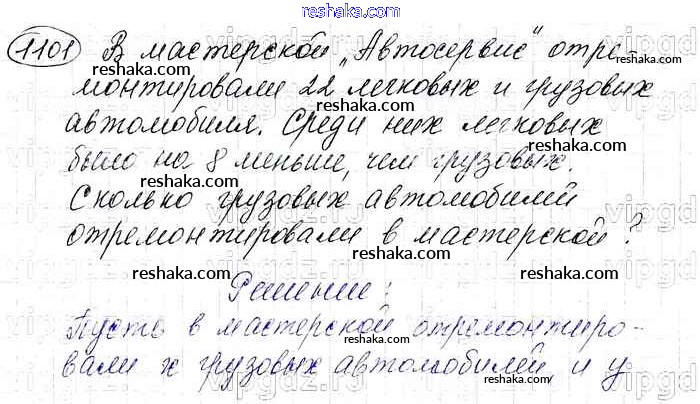 reshaka.com
1101 В мастерской „Автосервис" отре-
монтировали 22 легковых и грузовых
reshaka.com
автомобиля. Среди них легковых
было на 8 меньше, чем грузовых.
reshaka.com
Сколько грузовых автомобилей
reshaka.com
отремонтировали в мастерской?
reshaka.com
Решение:
reshaka.com
Пусть в мастерской отремонтиро-
вали х грузовых автомобилей и у
reshaka.com